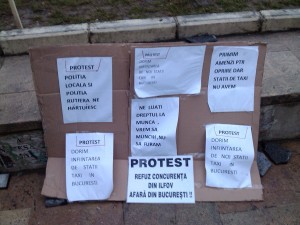 PROTEST
POLITIA
LOCALA SI
POLITIA
RUTIERA NE
HĂRȚUIESC
PROTEST
DORIM
INFIINTAREA
DE NES STATII
TAXI IN
PRIMIM
AMENZI PTR
OPRIRE DAR
STATII DE TAXI
NU AVEM
NE LUATI
DREPTUL LA
MUNCA,
VREM SA
MUNCIM, NU
SA FURAM
PROTEST
DORIM
INFIINTAREA
DE STATII
TAXI IN
BUCURESTI
PROTEST
REFUZ CONCURENȚA
DIN ILFOV
AFARĂ DIN BUCUREȘTI !!
PROTEST
DORIM
INFIINTAREA
DE NES STATII
TAXI IN
BUCURESTI